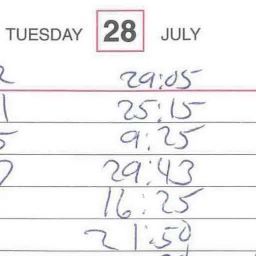 TUESDAY 28 JULY
29:05
1 25:15
5 9:25
7 29:43
16:25
21:50